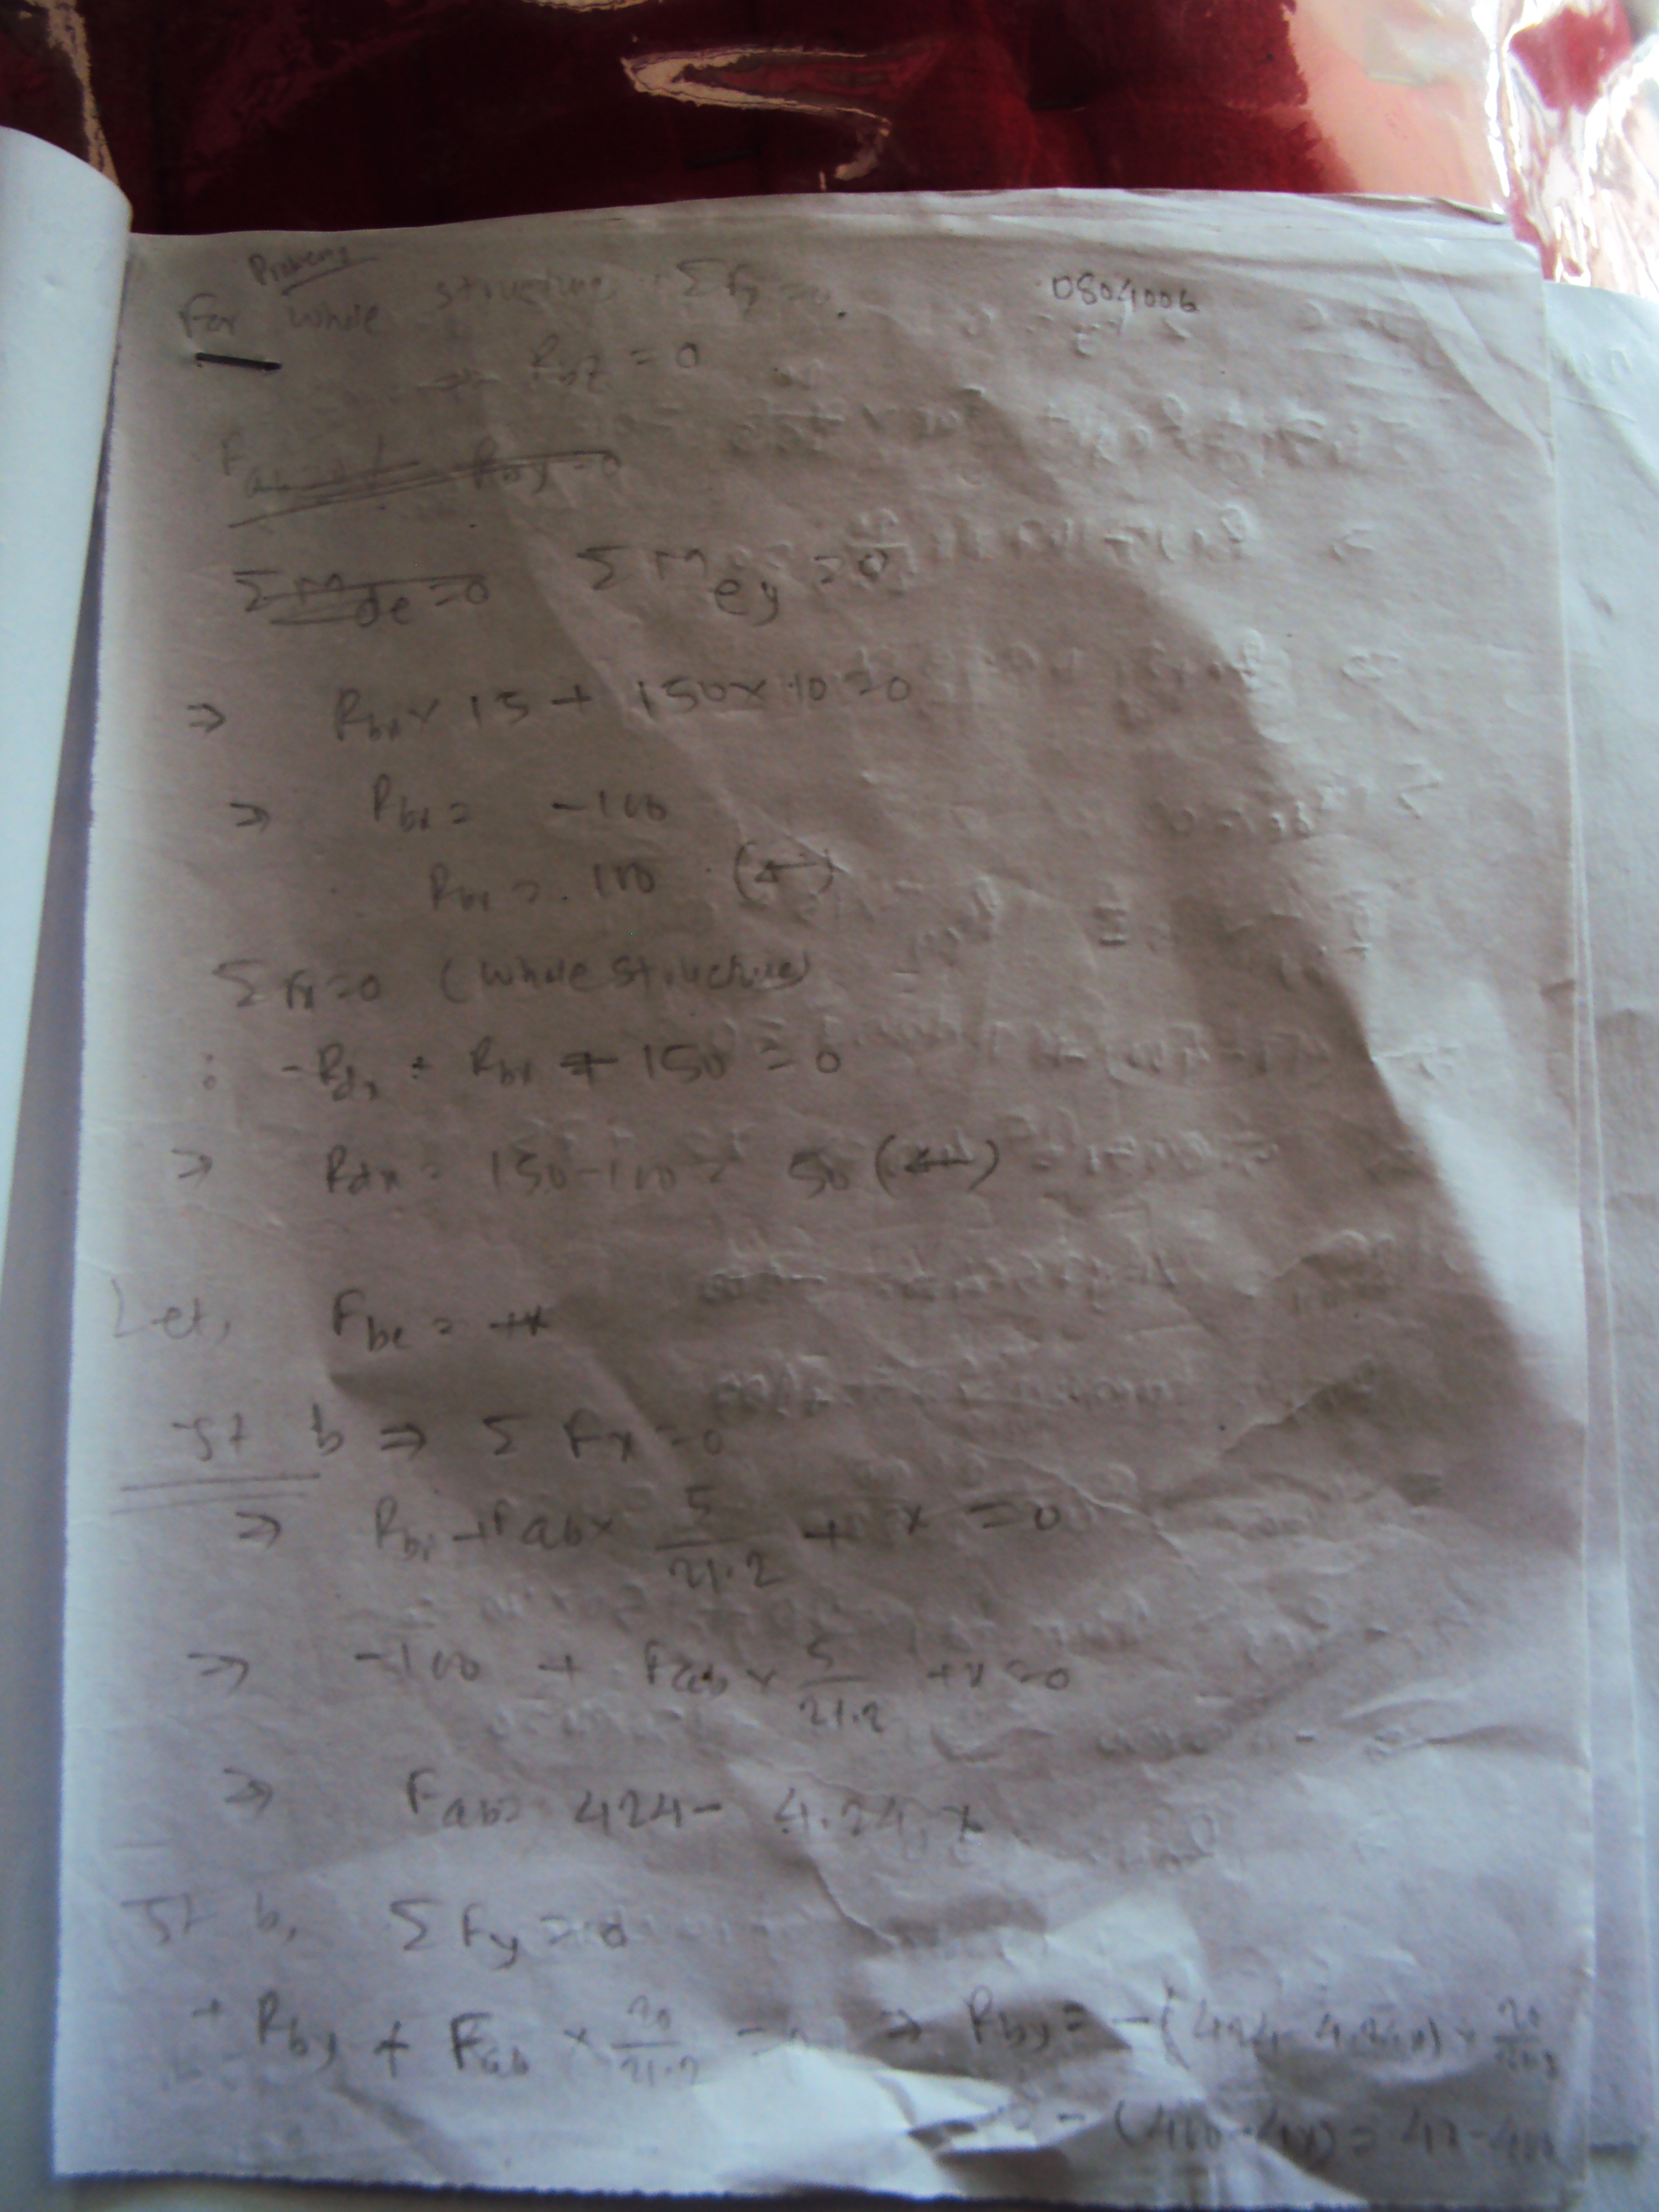 Problem
0804006
For whole structure, ΣFz = 0.
⇒ Rbz = 0
Rby = 0
ΣM de = 0 ΣM ey = 0
⇒ Rbx × 15 + 150 × 10 = 0
⇒ Rbx = -100
Rbx = 100 (←)
ΣFx = 0 (whole structure)
: -Rdx + Rbx + 150 = 0
⇒ Rdx = 150-100 = 50 (←)
Let, Fbc = x
Jt b ⇒ Σ Fx = 0
⇒ Rbx + Fab × 5/21.2 + x = 0
⇒ -100 + Fab × 5/21.2 + x = 0
⇒ Fab = 424 - 4.24 x
Jt b, ΣFy = 0
+ Rby + Fab × 20/21.2 = 0 ⇒ Rby = -(424 - 4.24x) × 20/21.2
= -(400-4x) = 4x-400